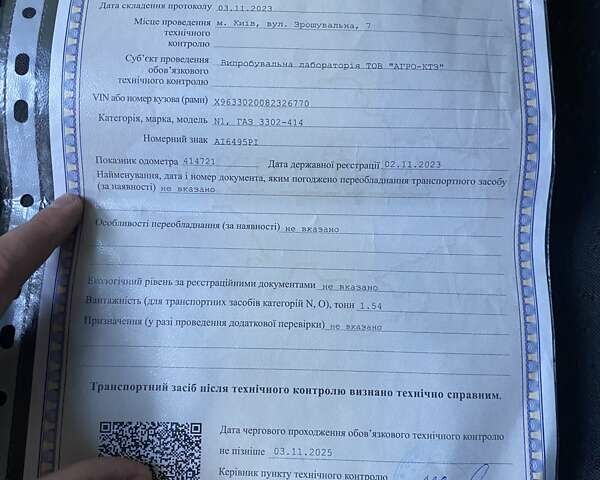 Дата складення протоколу 03.11.2023
Місце проведення м. Київ, вул. Зрошувальна, 7
технічного
контролю
Суб'єкт проведення
обов'язкового Випробувальна лабораторія ТОВ "АГРО-КТЗ"
технічного контролю
VIN або номер кузова (рами) X9633020082326770
Категорія, марка, модель N1, ГАЗ 3302-414
Номерний знак AI6495PI
Показник одометра 414721 Дата державної реєстрації 02.11.2023
Найменування, дата і номер документа, яким погоджено переобладнання транспортного засобу
(за наявності) не вказано
Особливості переобладнання (за наявності) не вказано
Екологічний рівень за реєстраційними документами не вказано
Вантажність (для транспортних засобів категорій N, O), тонн 1.54
Призначення (у разі проведення додаткової перевірки) не вказано
Транспортний засіб після технічного контролю визнано технічно справним.
Дата чергового проходження обов'язкового технічного контролю
не пізніше 03.11.2025
Керівник пункту технічного контролю